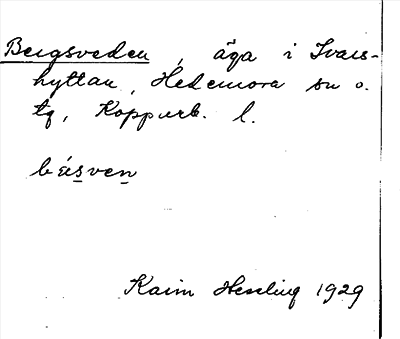 Bergsveden, äga i Ivars-
hyttan, Hedemora sn o.
tg, Kopparb. l.
básven
Karin Hessling 1929